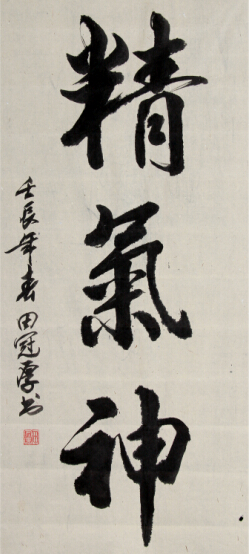 精氣神
壬辰年春田冠厚书